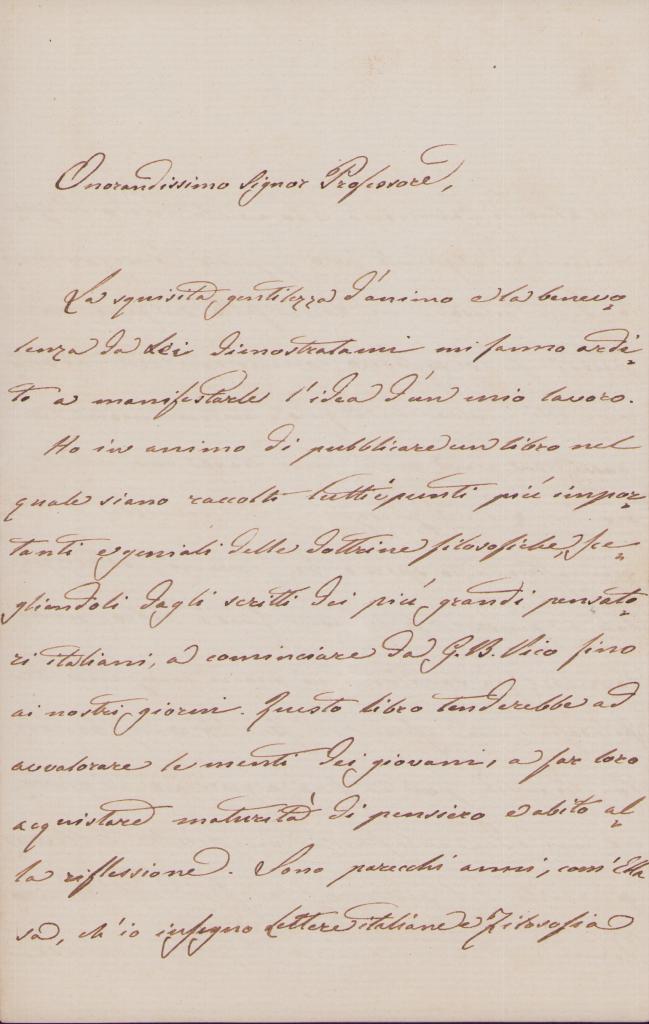 Onorandissimo Signor Professore,
La squisita gentilezza d'animo e la benevo=
lenza da Lei dimostratami mi fanno ardi=
to a manifestarle l'idea d'un mio lavoro.
Ho in animo di pubblicare un libro nel
quale siano raccolti tutti i punti più impor=
tanti e geniali delle dottrine filosofiche, sce=
gliendoli dagli scritti dei più grandi pensato=
ri italiani, a cominciare da G. B. Vico fino
ai nostri giorni. Questo libro tenderebbe ad
avvalorare le menti dei giovani, a far loro
acquistare maturità di pensiero e abito al=
la riflessione. Sono parecchi anni, com'Ella
sa, ch'io insegno Lettere italiane e Filosofia